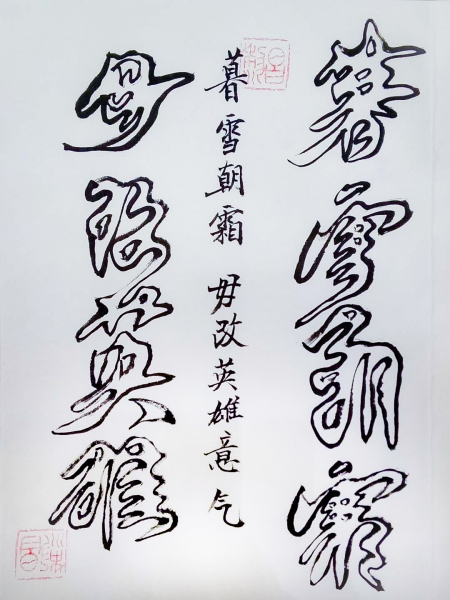 暮雪朝霜
暮雪朝霜 毋改英雄意气
毋改英雄